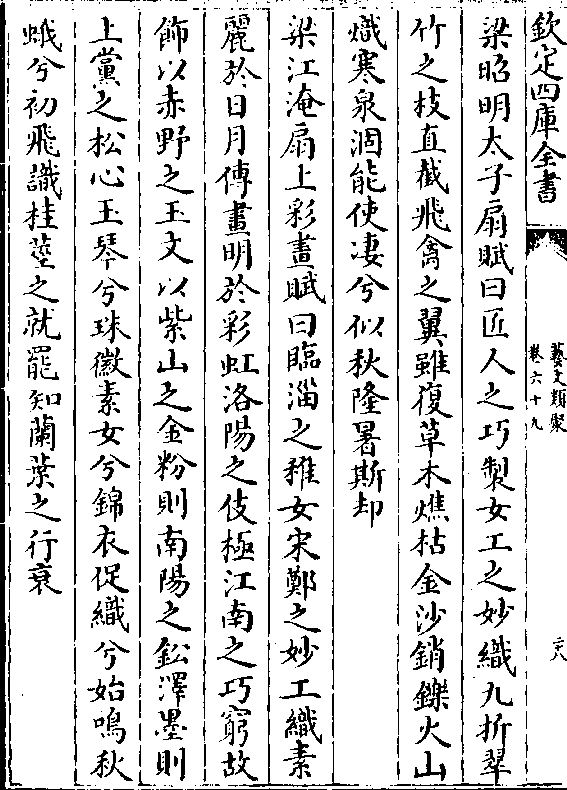 欽定四庫全書
藝文類聚
卷六十九
二八
梁昭明太子扇賦曰匠人之巧製女工之妙織九折翠
竹之枝直截飛禽之翼雖復草木燋枯金沙銷鑠火山
熾寒泉涸能使凄兮似秋隆暑斯却
梁江淹扇上彩畫賦曰臨淄之稚女宋鄭之妙工織素
麗於日月傳畫明於彩虹洛陽之伎極江南之巧窮故
飾以赤野之玉文以紫山之金粉則南陽之鈆澤墨則
上黨之松心玉琴兮珠徽素女兮錦衣促織兮始鳴秋
蛾兮初飛識桂莖之就罷知蘭葉之行衰